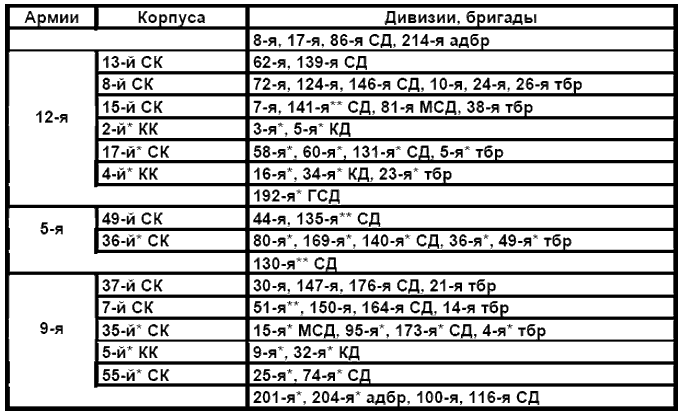 Армии Корпуса Дивизии, бригады
8-я, 17-я, 86-я СД, 214-я адбр
13-й СК 62-я, 139-я СД
8-й СК 72-я, 124-я, 146-я СД, 10-я, 24-я, 26-я тбр
12-я 15-й СК 7-я, 141-я** СД, 81-я МСД, 38-я тбр
2-й* КК 3-я*, 5-я* КД
17-й* СК 58-я*, 60-я*, 131-я* СД, 5-я* тбр
4-й* КК 16-я*, 34-я* КД, 23-я* тбр
192-я* ГСД
5-я 49-й СК 44-я, 135-я** СД
36-й* СК 80-я*, 169-я*, 140-я* СД, 36-я*, 49-я* тбр
130-я** СД
37-й СК 30-я, 147-я, 176-я СД, 21-я тбр
7-й СК 51-я**, 150-я, 164-я СД, 14-я тбр
9-я 35-й* СК 15-я* МСД, 95-я*, 173-я* СД, 4-я* тбр
5-й* КК 9-я*, 32-я* КД
55-й* СК 25-я*, 74-я* СД
201-я*, 204-я* адбр, 100-я, 116-я СД